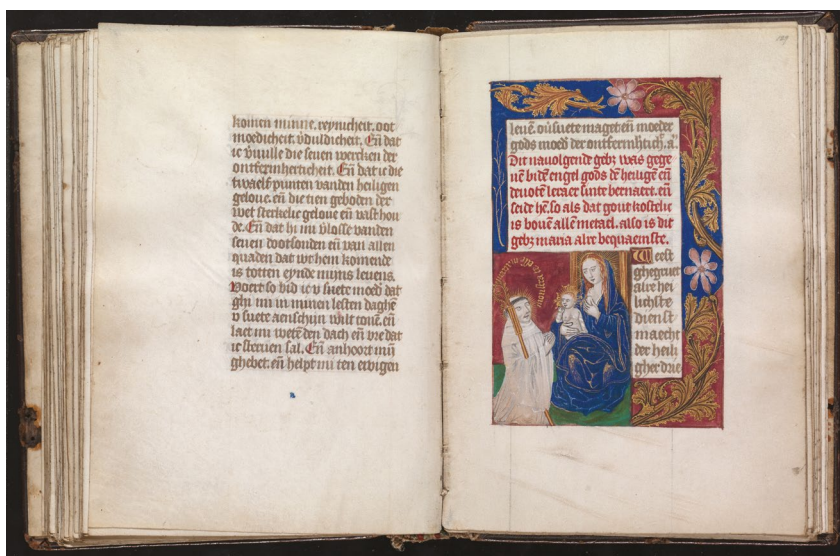 komen minne. reynicheit. oot
moedicheit. v̄duldicheit. En̄ dat
ic v̄uulle die seuen wercken der
ontfermherticheit. En̄ dat ic die
twaelf punten vanden heiligen
gelouе. en̄ die tien geboden der
wet sterckelic geloue en̄ vast hou
de. En̄ dat hi mi v̄losse vanden
seuen dootsonden en̄ van allen
quaden dat my komende
is totten eynde mijns leuens.
Voert so bid ic v suete moed̄ dat
ghi mi in minen lesten daghē
v suete aenschijn wilt tonē. en̄
laet mi wetē den dach en̄ vre dat
ic steruen sal. En̄ anhoort mijn
ghebet. en̄ helpt mi ten ewigen
127
leuē. o v̄suete maget en̄ moeder
gods moed̄ der ontfermh̄tich̄. a.
Dit nauolgende gebz was gege
uē bidē engel gods dē heiligē en̄
deuotē leraer sinte bernaert. en̄
seide hē. so als dat gout kostelic
is bouē allē metael. also is dit
gebz maria alre bequaemste.
Weest
ghegruet
alre hei
lichste
dienst
maecht
der heili
gher drie